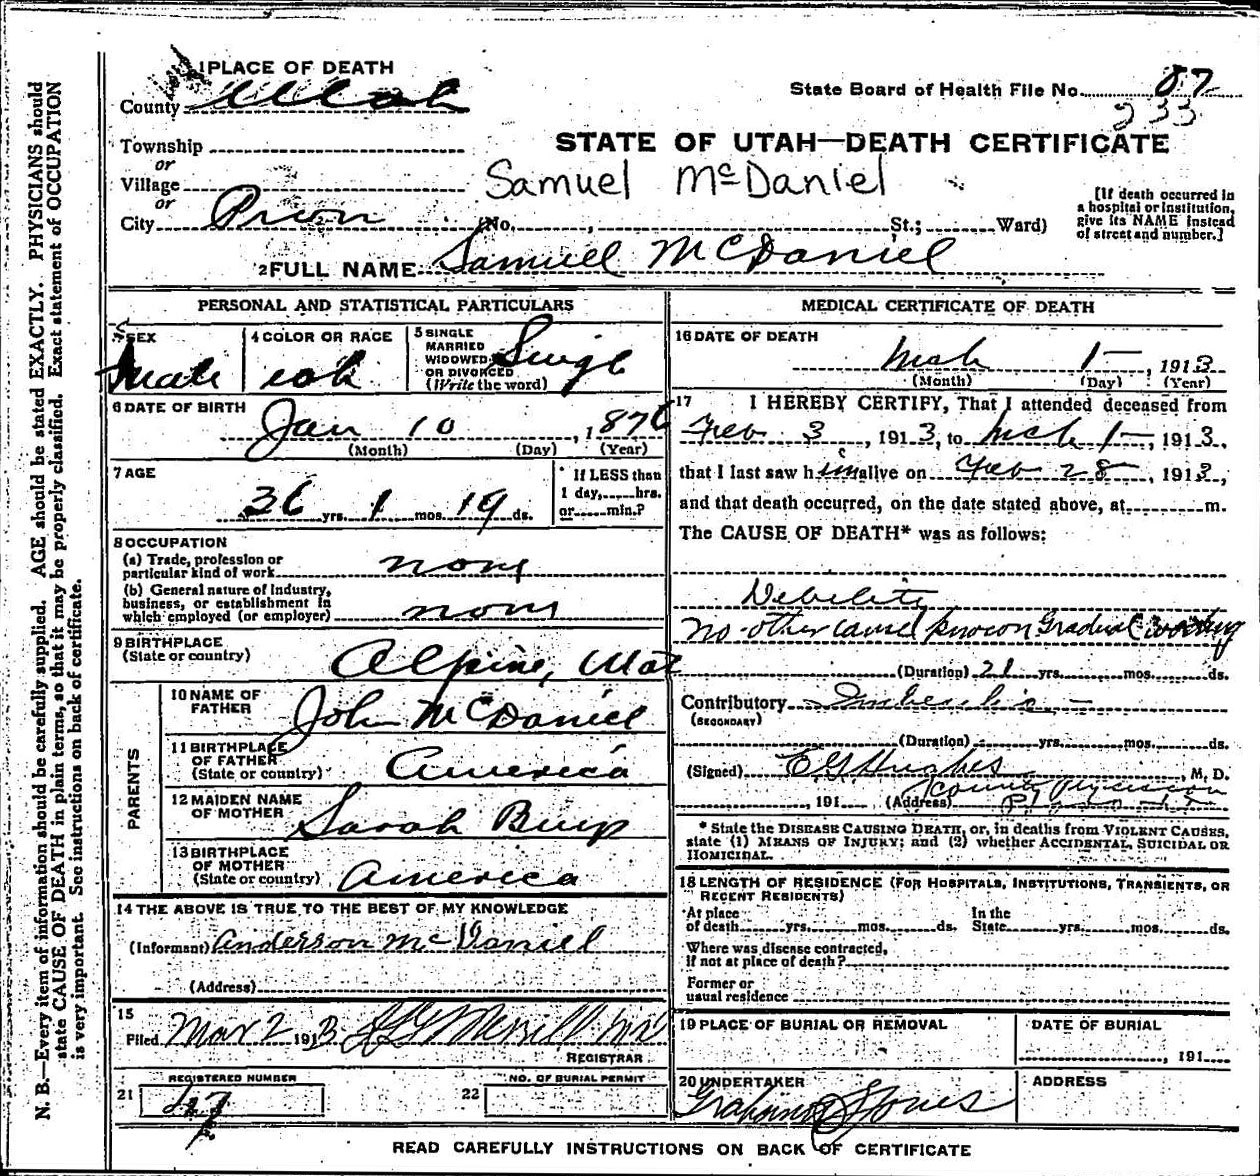 1 PLACE OF DEATH
County Utah
State Board of Health File No. 87
233
Township
or
Village
or
City Provo (No. , St.; Ward)
STATE OF UTAH—DEATH CERTIFICATE
Samuel McDaniel
[If death occurred in a hospital or institution, give its NAME instead of street and number.]
2 FULL NAME Samuel McDaniel
PERSONAL AND STATISTICAL PARTICULARS
3 SEX
Male
4 COLOR OR RACE
5 SINGLE
MARRIED
WIDOWED
OR DIVORCED
(Write the word)
Single
6 DATE OF BIRTH
Jan 10, 1876
(Month) (Day) (Year)
7 AGE
36 yrs. 1 mos. 19 ds.
If LESS than
1 day, hrs.
or min.?
8 OCCUPATION
(a) Trade, profession or
particular kind of work none
(b) General nature of industry,
business, or establishment in
which employed (or employer) none
9 BIRTHPLACE
(State or country) Alpine, Utah
PARENTS
10 NAME OF
FATHER John McDaniel
11 BIRTHPLACE
OF FATHER
(State or country) America
12 MAIDEN NAME
OF MOTHER Sarah
13 BIRTHPLACE
OF MOTHER
(State or country) America
14 THE ABOVE IS TRUE TO THE BEST OF MY KNOWLEDGE
(Informant) Anderson McDaniel
(Address)
15
Filed Mar 2 1913 Merrill
REGISTRAR
REGISTERED NUMBER
21
NO. OF BURIAL PERMIT
22
MEDICAL CERTIFICATE OF DEATH
16 DATE OF DEATH
Mch 1, 1913
(Month) (Day) (Year)
17 I HEREBY CERTIFY, That I attended deceased from
Feb 3, 1913, to Mch 1, 1913,
that I last saw him alive on Feb 28, 1913,
and that death occurred, on the date stated above, at m.
The CAUSE OF DEATH* was as follows:
Debility
no other cause known Gradual
(Duration) 21 yrs. mos. ds.
Contributory
(SECONDARY)
(Duration) yrs. mos. ds.
(Signed) E G Hughes, M. D.
County Physician
, 191 (Address)
* State the DISEASE CAUSING DEATH, or, in deaths from VIOLENT CAUSES,
state (1) MEANS OF INJURY; and (2) whether ACCIDENTAL, SUICIDAL OR
HOMICIDAL.
18 LENGTH OF RESIDENCE (FOR HOSPITALS, INSTITUTIONS, TRANSIENTS, OR
RECENT RESIDENTS)
At place
of death yrs. mos. ds.
In the
State yrs. mos. ds.
Where was disease contracted,
if not at place of death?
Former or
usual residence
19 PLACE OF BURIAL OR REMOVAL
DATE OF BURIAL
, 191
20 UNDERTAKER
ADDRESS
Jones
READ CAREFULLY INSTRUCTIONS ON BACK OF CERTIFICATE
N. B.—Every item of information should be carefully supplied. AGE should be stated EXACTLY. PHYSICIANS should
state CAUSE OF DEATH in plain terms, so that it may be properly classified. Exact statement of OCCUPATION
is very important. See instructions on back of certificate.